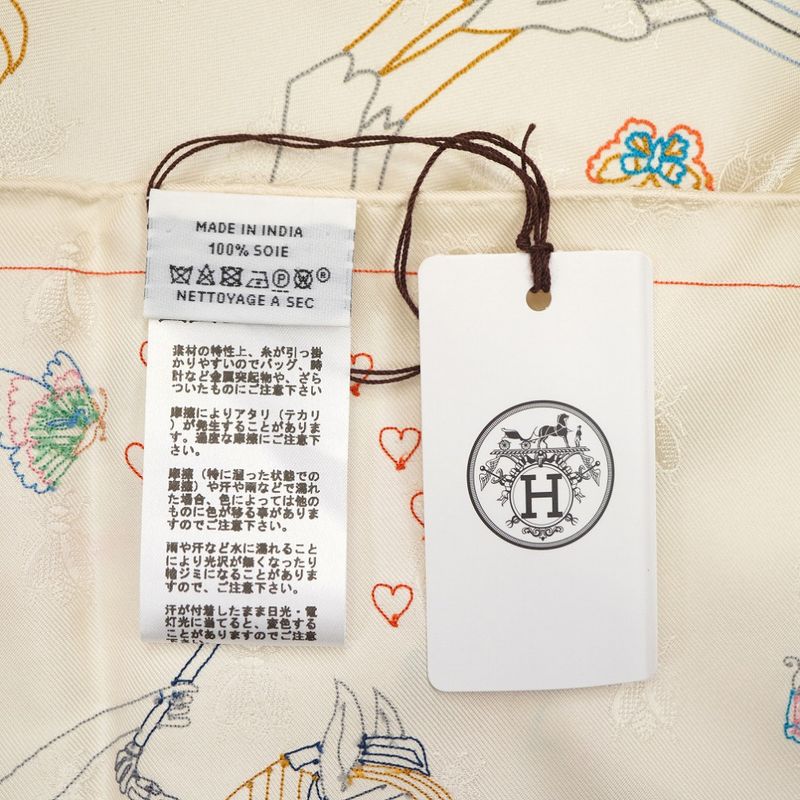 MADE IN INDIA
100% SOIE
NETTOYAGE A SEC
素材の特性上、糸が引っ掛
かりやすいのでバッグ、時
計など金属突起物や、ざら
ついたものにご注意下さい
摩擦によりアタリ(テカリ
)が発生することがありま
す。過度な摩擦にご注意下
さい。
摩擦(特に湿った状態での
摩擦)や汗や雨などで濡れ
た場合、色によっては他の
ものに色が移る事がありま
すのでご注意下さい。
雨や汗など水に濡れること
により光沢が無くなったり
輪ジミになることがありま
すので、ご注意下さい。
汗が付着したまま日光・電
灯光に当てると、変色する
ことがありますのでご注意
H